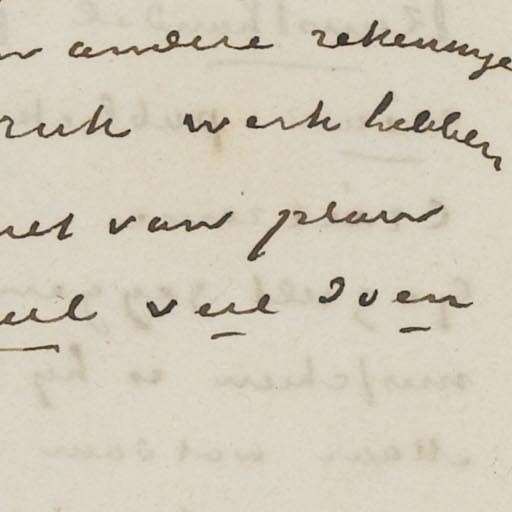 andere rekeninge
ruk werk hebben
van plan
veel doen